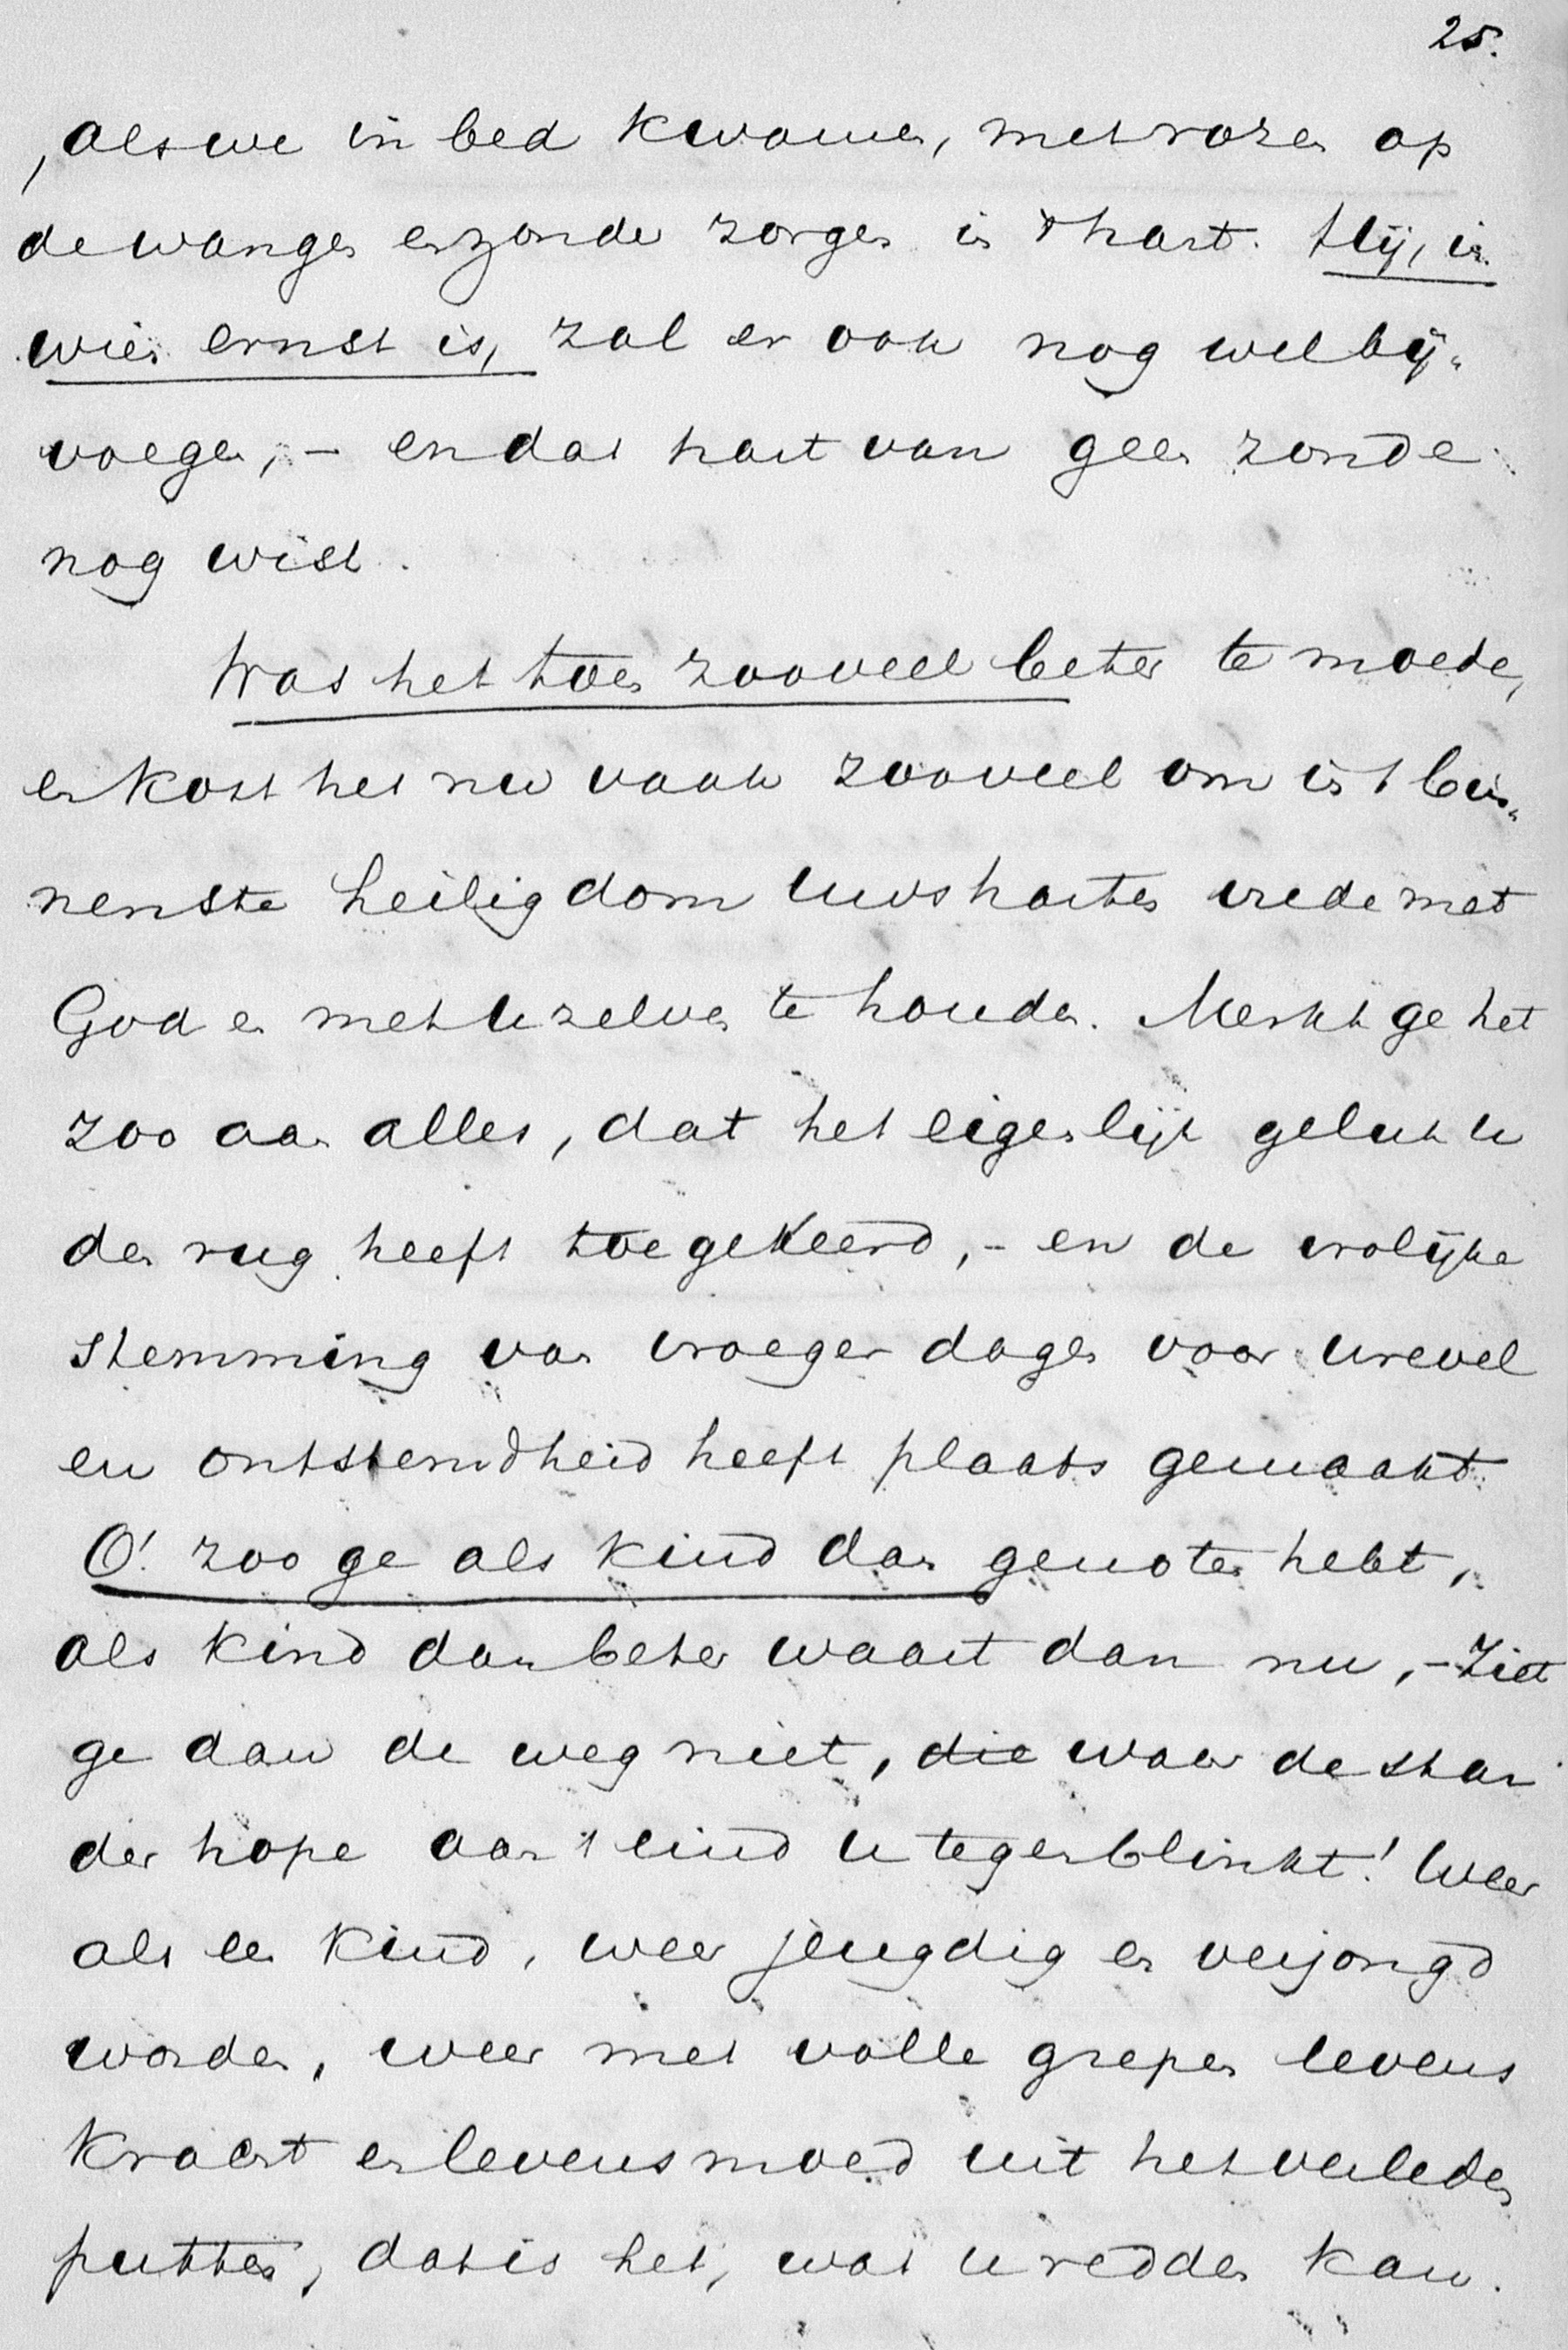 25.
, als we in bed kwamen, met rozen op
de wangen en zonder zorgen in 't hart. Hij, in
wien ernst is, zal er ook nog wel bij„
voegen, – en dat hart van geen zonde
nog wist.
Was het toen zooveel beter te moede,
en kost het nu vaak zooveel om in 't bin„
nenste heiligdom uws harten vrede met
God en met uzelven te houden. Merkt ge het
zoo aan alles, dat het eigenlijk geluk u
den rug heeft toegekeerd, – en de vrolijke
stemming van vroeger dagen voor wrevel
en ontstemdheid heeft plaats gemaakt.
O! zoo ge als kind dan genoten hebt,
als kind dan beter waart dan nu, – Ziet
ge dan de weg niet, die waar de star
der hope aan 't eind u tegenblinkt! Weer
als een kind, weer jeugdig en verjongd
worden, weer met volle grepen levens
kracht en levensmoed uit het verleden
putten, dat is het, wat u redden kan.